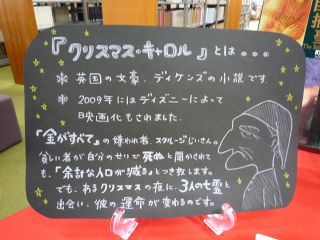 『クリスマス・キャロル』とは。。。
※ 英国の文豪、ディケンズの小説です。
※ 2009年にはディズニーによって
映画化もされました。
「金がすべて」の嫌われ者、スクルージじいさん。
貧しい者が自分のせいで死ぬと聞かされても、
「余計な人口が減る」とつき放します。
でも、あるクリスマスの夜に、3人の亡霊と
出会い、彼の運命が変わるのです。